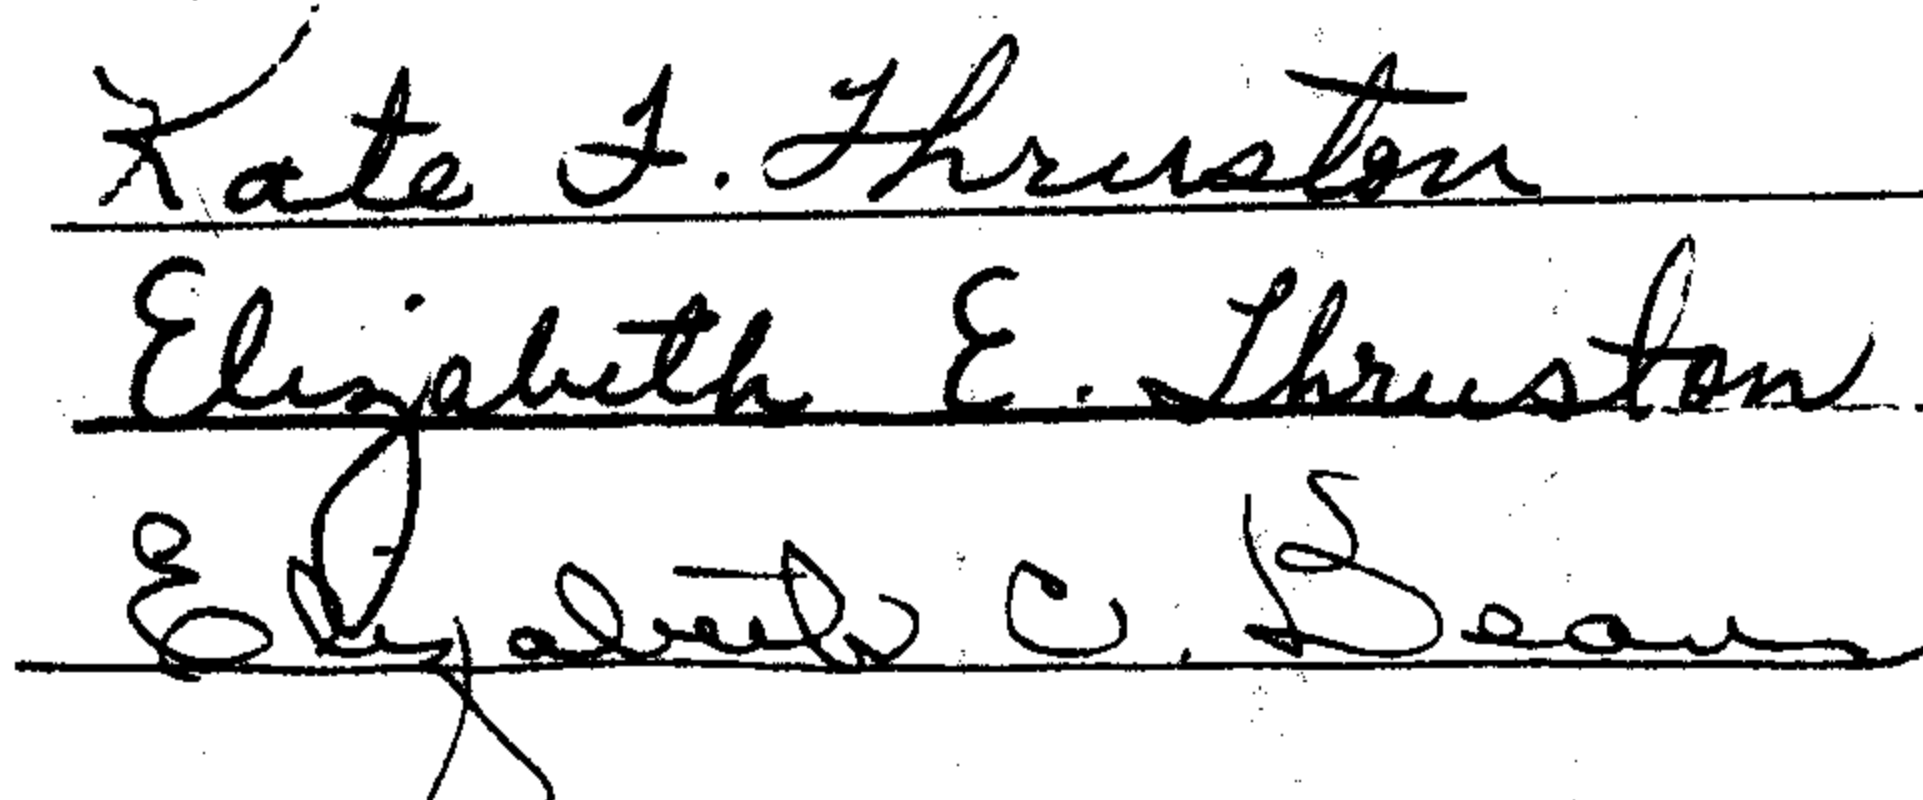 Kate F. Thruston
Elizabeth E. Thruston
Elizabeth C.